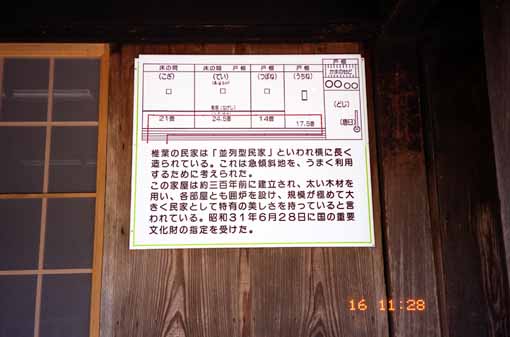 床の間 床の間 戸棚 戸棚 戸棚
(こざ) (でい) (つぼね) (うちね) かまのせど
(どじ)
21畳 24.5畳 14畳 17.5畳
椎葉の民家は「並列型民家」といわれ横に長く
造られている。これは急傾斜地を、うまく利用
するために考えられた。
この家屋は約三百年前に建立され、太い木材を
用い、各部屋とも囲炉を設け、規模が極めて大
きく民家として特有の美しさを持っていると言
われている。昭和31年6月28日に国の重要
文化財の指定を受けた。
16 11:28